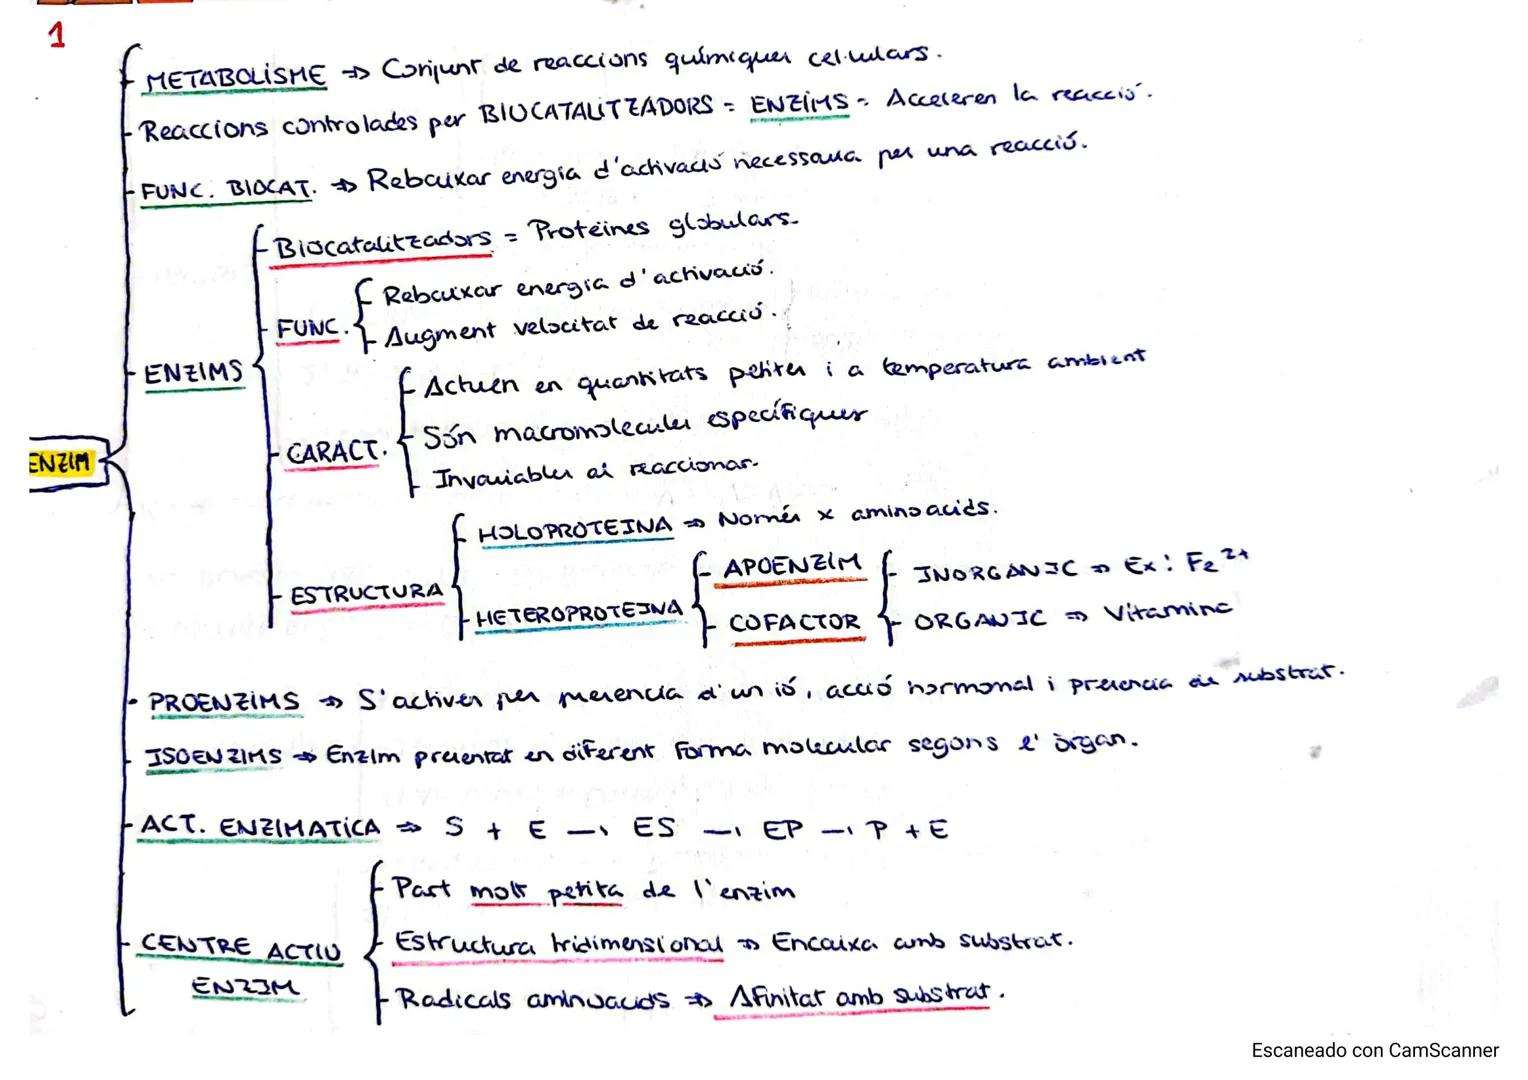 1
METABOLISME => Conjunt de reaccions químiques cel·lulars.
Reaccions controlades per BIOCATALITZADORS = ENZIMS - Acceleren la reacció.
FUNC. BIOCAT. => Rebaixar energia d'activació necessaria per una reacció.
Biocatalitzadors = Proteïnes globulars.
FUNC.
Rebaixar energia d'activació.
Augment velocitat de reacció.
ENZIMS
CARACT.
Actuen en quantitats petites i a temperatura ambient
Són macromolecules específiques
Invariables al reaccionar.
ENZIM
ESTRUCTURA
HOLOPROTEINA => Només x aminoacids.
HETEROPROTEINA
APOENZIM
COFACTOR
INORGANIC => Ex: Fe 2+
ORGANIC => Vitamina
PROENZIMS => S'activen per presencia d'un ió, acció hormonal i presencia de substrat.
ISOENZIMS => Enzim presentat en diferent forma molecular segons l'òrgan.
ACT. ENZIMATICA => S + E → ES → EP → P + E
CENTRE ACTIU
ENZIM
Part molt petita de l'enzim
Estructura tridimensional => Encaixa amb substrat.
Radicals aminoacids => Afinitat amb substrat.
Escaneado con CamScanner